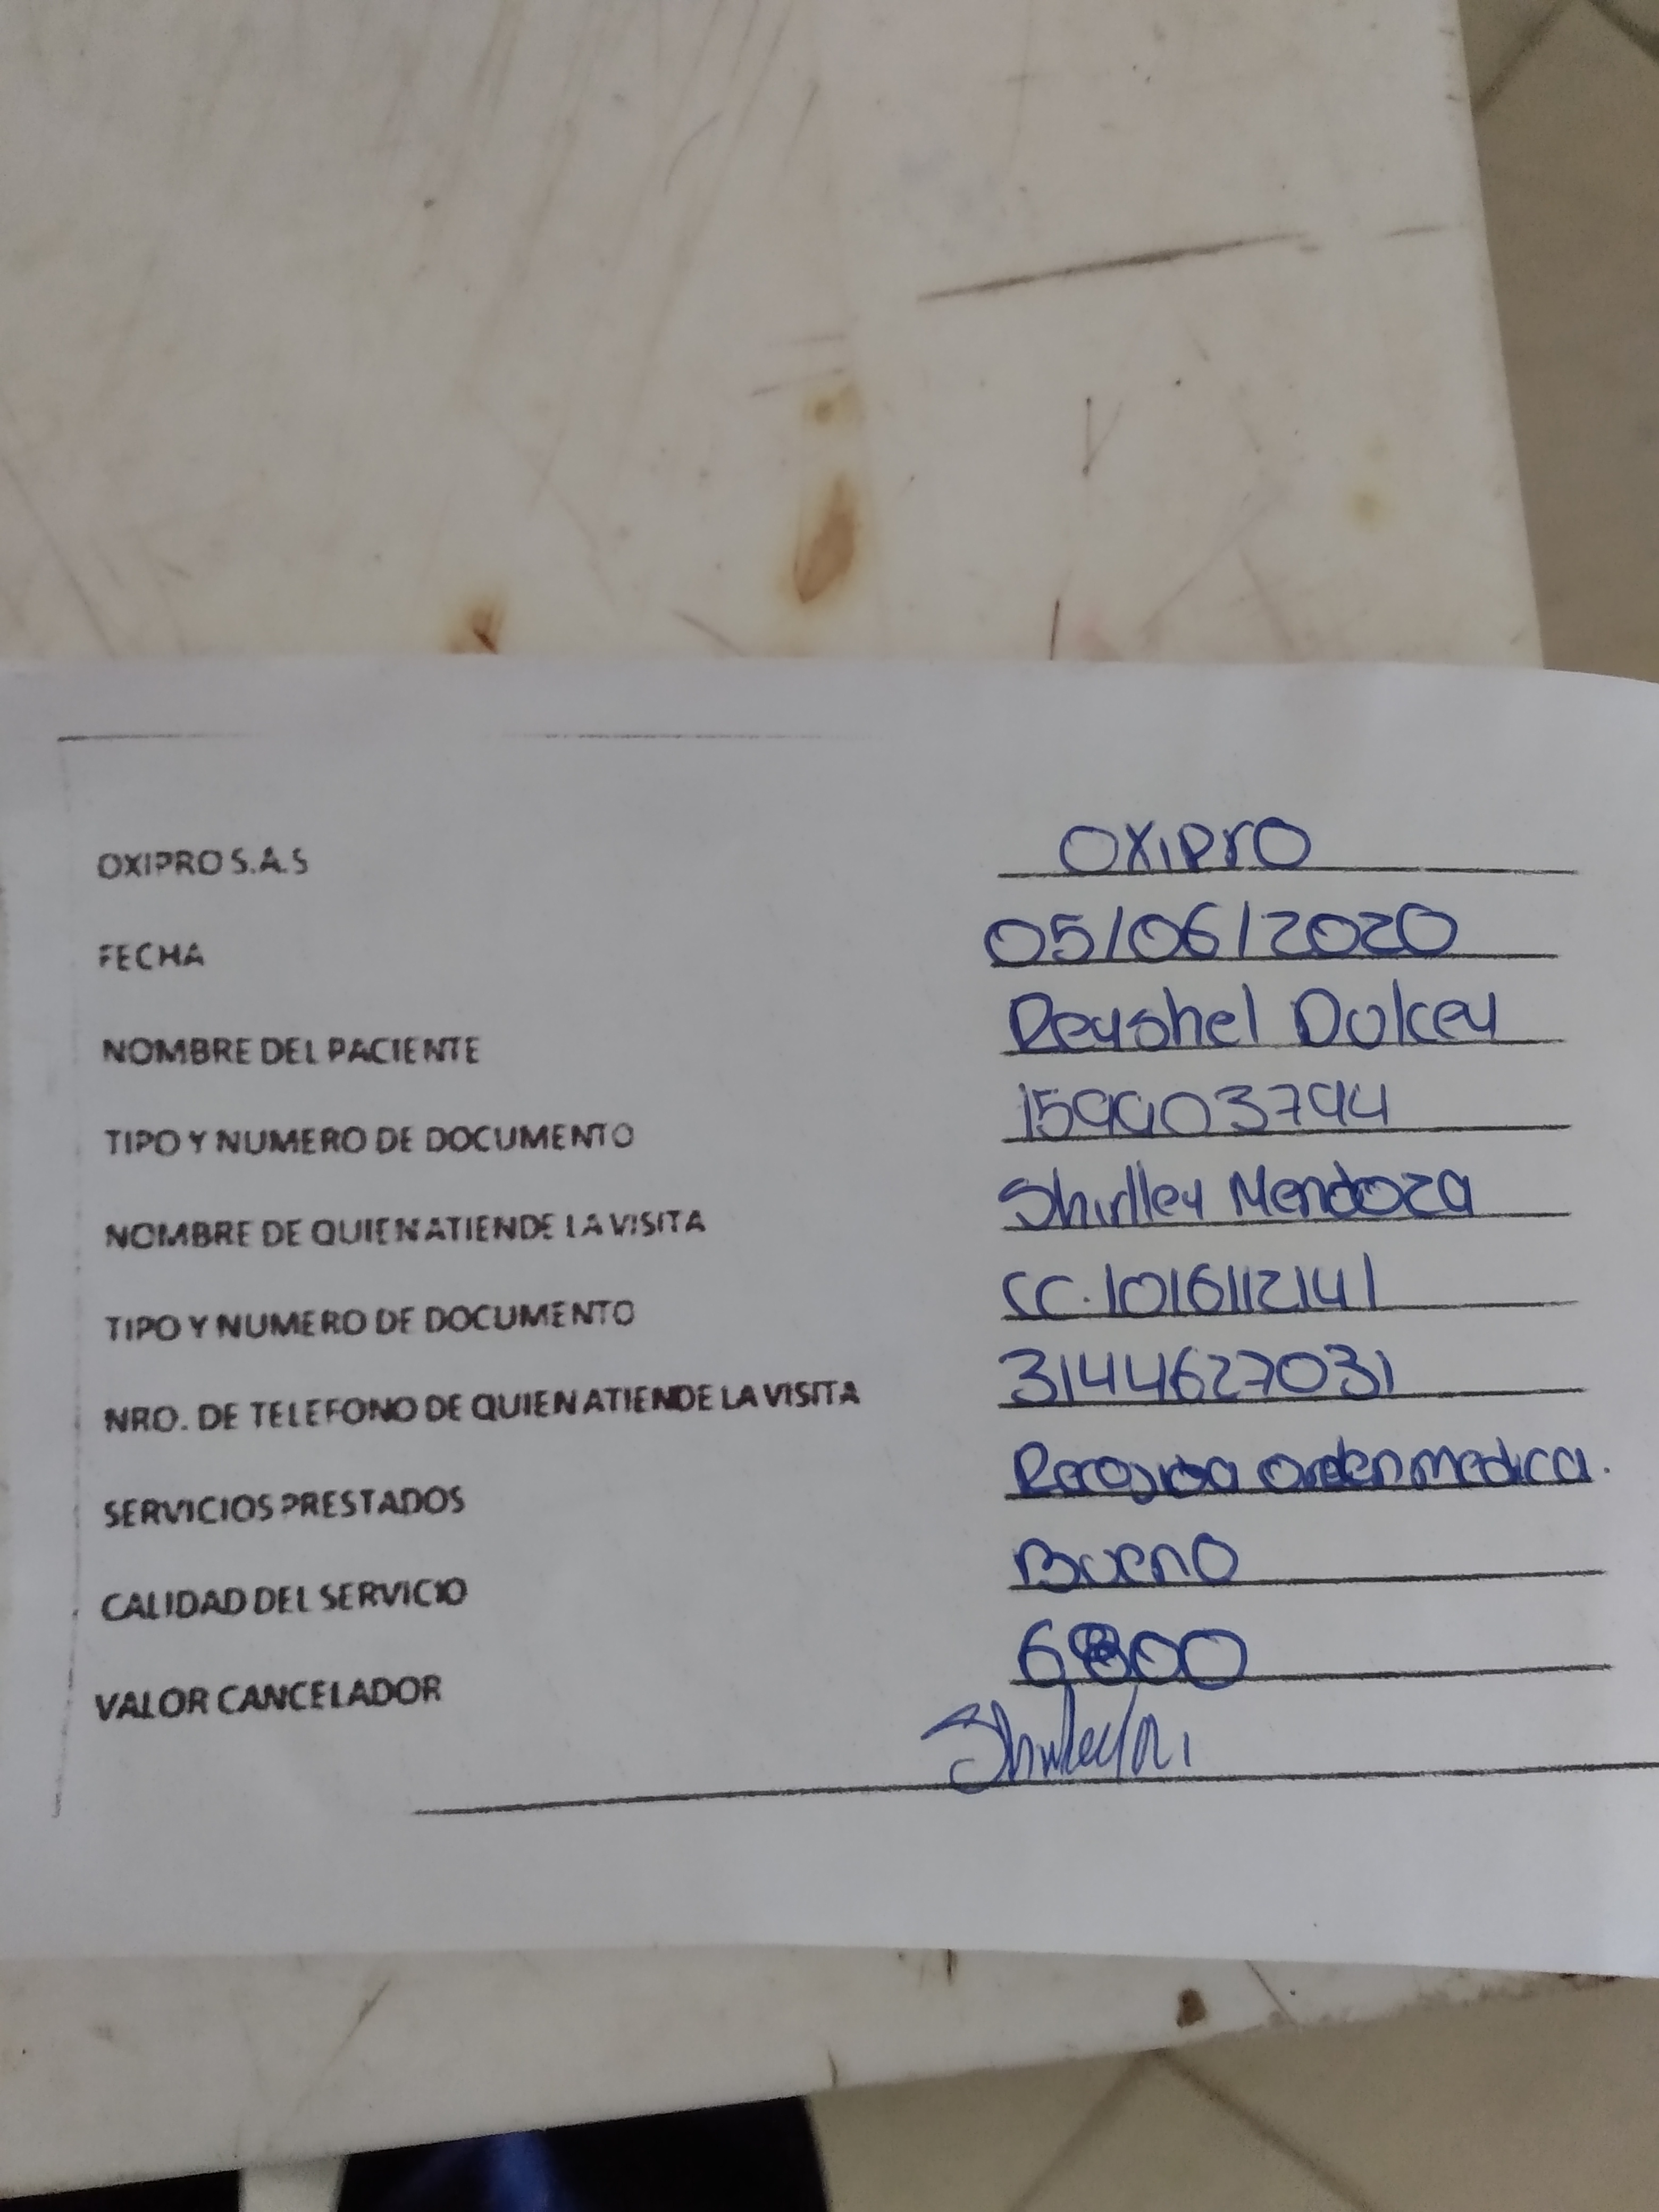 OXIPRO S.A.S OXIPRO
FECHA 05/06/2020
NOMBRE DEL PACIENTE Reyshel Dulcey
TIPO Y NUMERO DE DOCUMENTO
NOMBRE DE QUIEN ATIENDE LA VISITA Shirlley Mendoza
TIPO Y NUMERO DE DOCUMENTO CC. 1016112141
NRO. DE TELEFONO DE QUIEN ATIENDE LA VISITA 3144627031
SERVICIOS PRESTADOS orden medica.
CALIDAD DEL SERVICIO Bueno
VALOR CANCELADOR